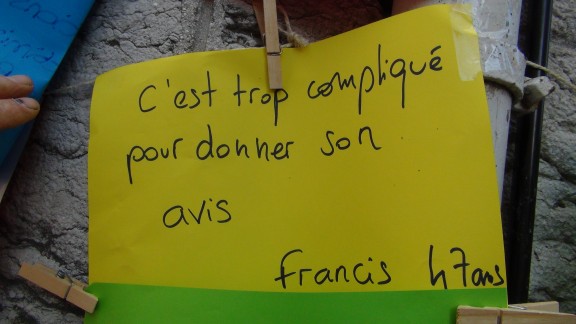 C'est trop compliqué
pour donner son
avis
Francis 47ans